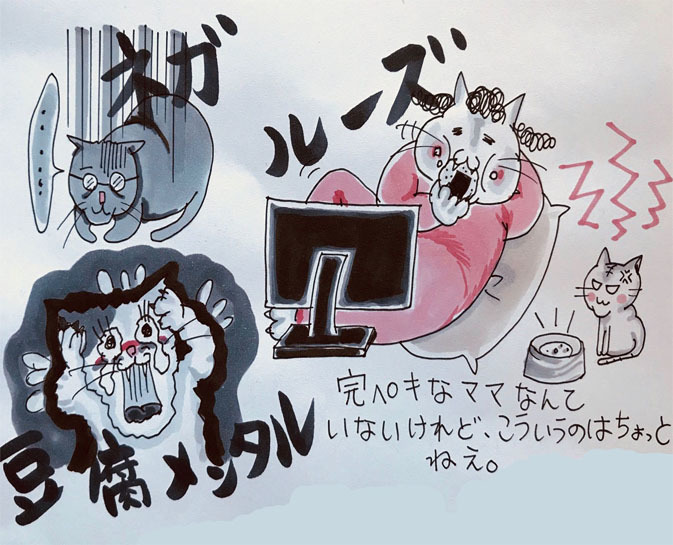 ネガ
ルーズ
豆腐メンタル
完ペキなママなんて
いないけれど、こういうのはちょっと
ねえ。